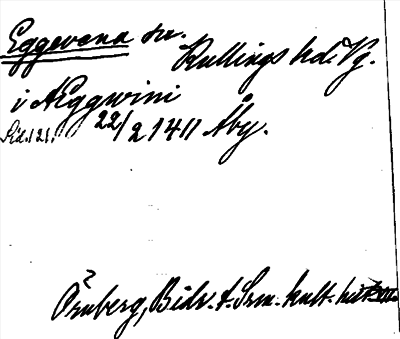 Eggevena sn.
Kullings hd. Vg.
i Æggwini
Sid. 121. 22/2 1411 Åby.
Örnberg, Bidr. t. Srm. kult. hist.